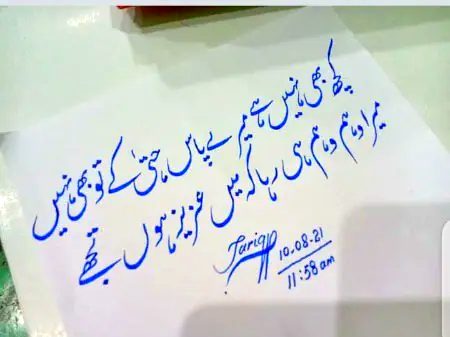 کچھ بھی نہیں ہے میرے پاس حتیٰ کے تو بھی نہیں
میرا وہم وہم ہی رہا کہ میں عزیز ہوں تجھے
Tariq
10.08.21
11:58am